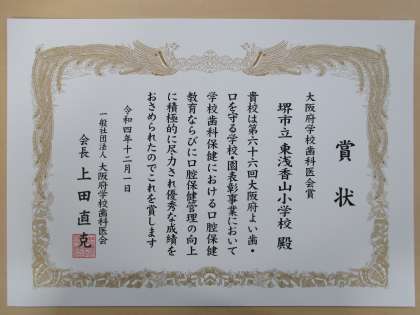 賞状
大阪府学校歯科医会賞
堺市立 東浅香山小学校 殿
貴校は第六十六回大阪府よい歯・
口を守る学校・園表彰事業において
学校歯科保健における口腔保健
教育ならびに口腔保健管理の向上
に積極的に尽力され優秀な成績を
おさめられたのでこれを賞します
令和四年十二月一日
一般社団法人 大阪府学校歯科医会
会長 上田直克